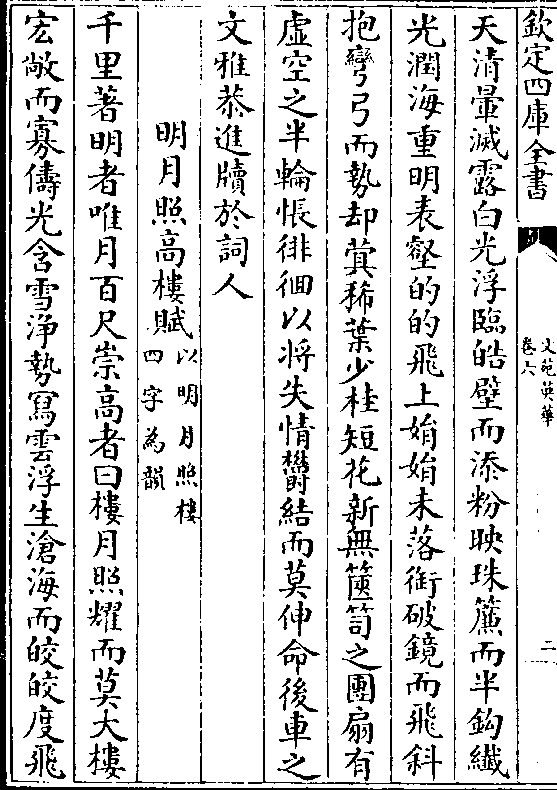 欽定四庫全書
文苑英華
卷六
二
天清暈滅露白光浮臨皓壁而添粉映珠簾而半鈎纎
光潤海重明表壑的的飛上娟娟未落銜破鏡而飛斜
抱彎弓而勢却蓂稀葉少桂短花新無篋笥之團扇有
虛空之半輪悵徘徊以將失情欝結而莫伸命後車之
文雅恭進牘於詞人
明月照高樓賦以明月照樓四字為韻
千里著明者唯月百尺崇高者曰樓月照耀而莫大樓
宏敞而寡儔光含雪浄勢寫雲浮生滄海而皎皎度飛